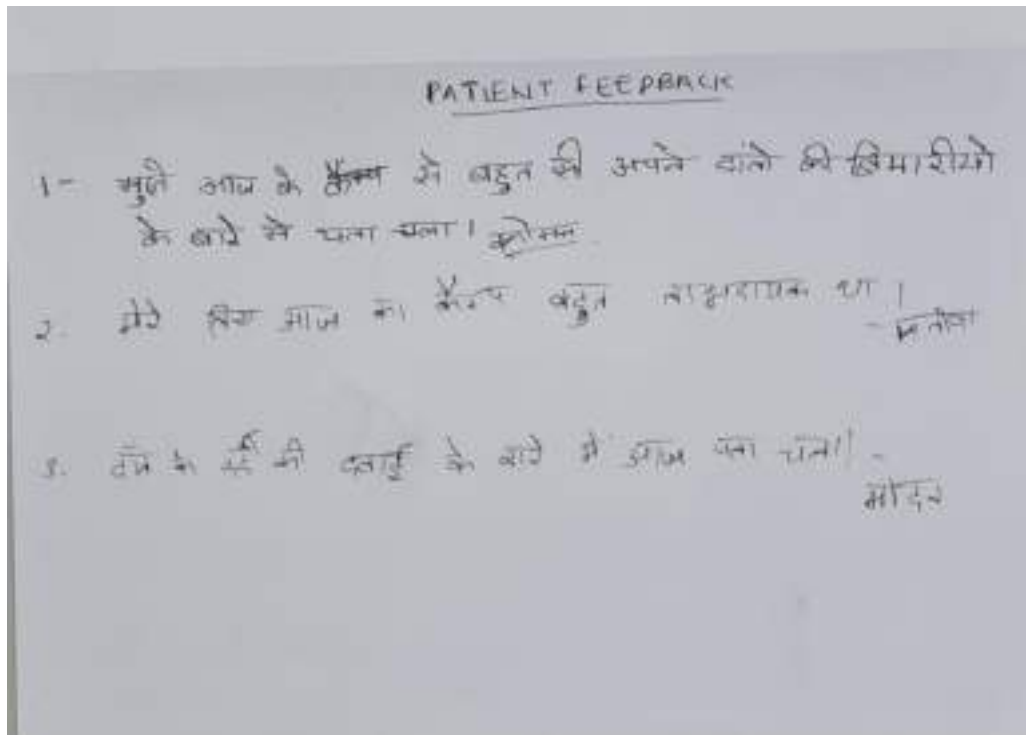 PATIENT FEEDBACK
1- मुजे आज के कैम्प से बहुत ही अपने दांतो की बिमारीयो
के बारे मे पता चला। कोमल
2. मेरे लिए आज का कैम्प बहुत लाभदायक था।
3. दांत के दर्द की दवाई के बारे में आज पता चला। -